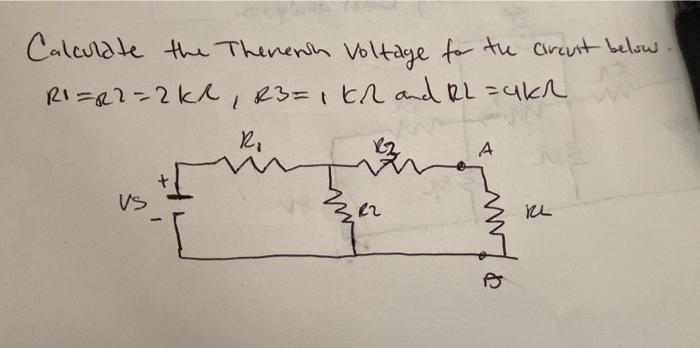 Calculate the Thevenin Voltage for the circuit below.
R1=R2=2kΩ, R3=1kΩ and RL=4kΩ
R1
R3
A
+
VS
-
R2
RL
B